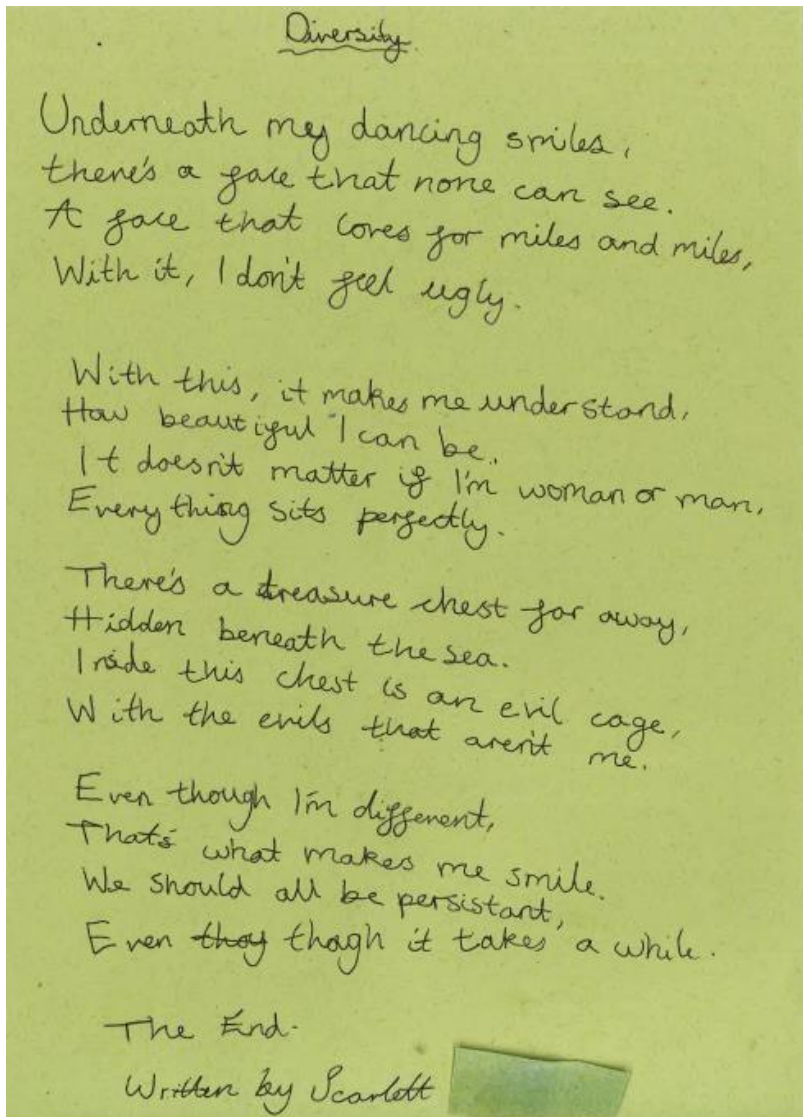 Diversity
Underneath my dancing smiles,
there's a face that none can see.
A face that loves for miles and miles,
With it, I don't feel ugly.
With this, it makes me understand,
How beautiful I can be.
It doesn't matter if I'm woman or man,
Everything sits perfectly.
There's a treasure chest far away,
Hidden beneath the sea.
Inside this chest is an evil cage,
With the evils that aren't me.
Even though I'm different,
That's what makes me smile.
We should all be persistant,
Even thoy thogh it takes a while.
The End.
Written by Scarlett